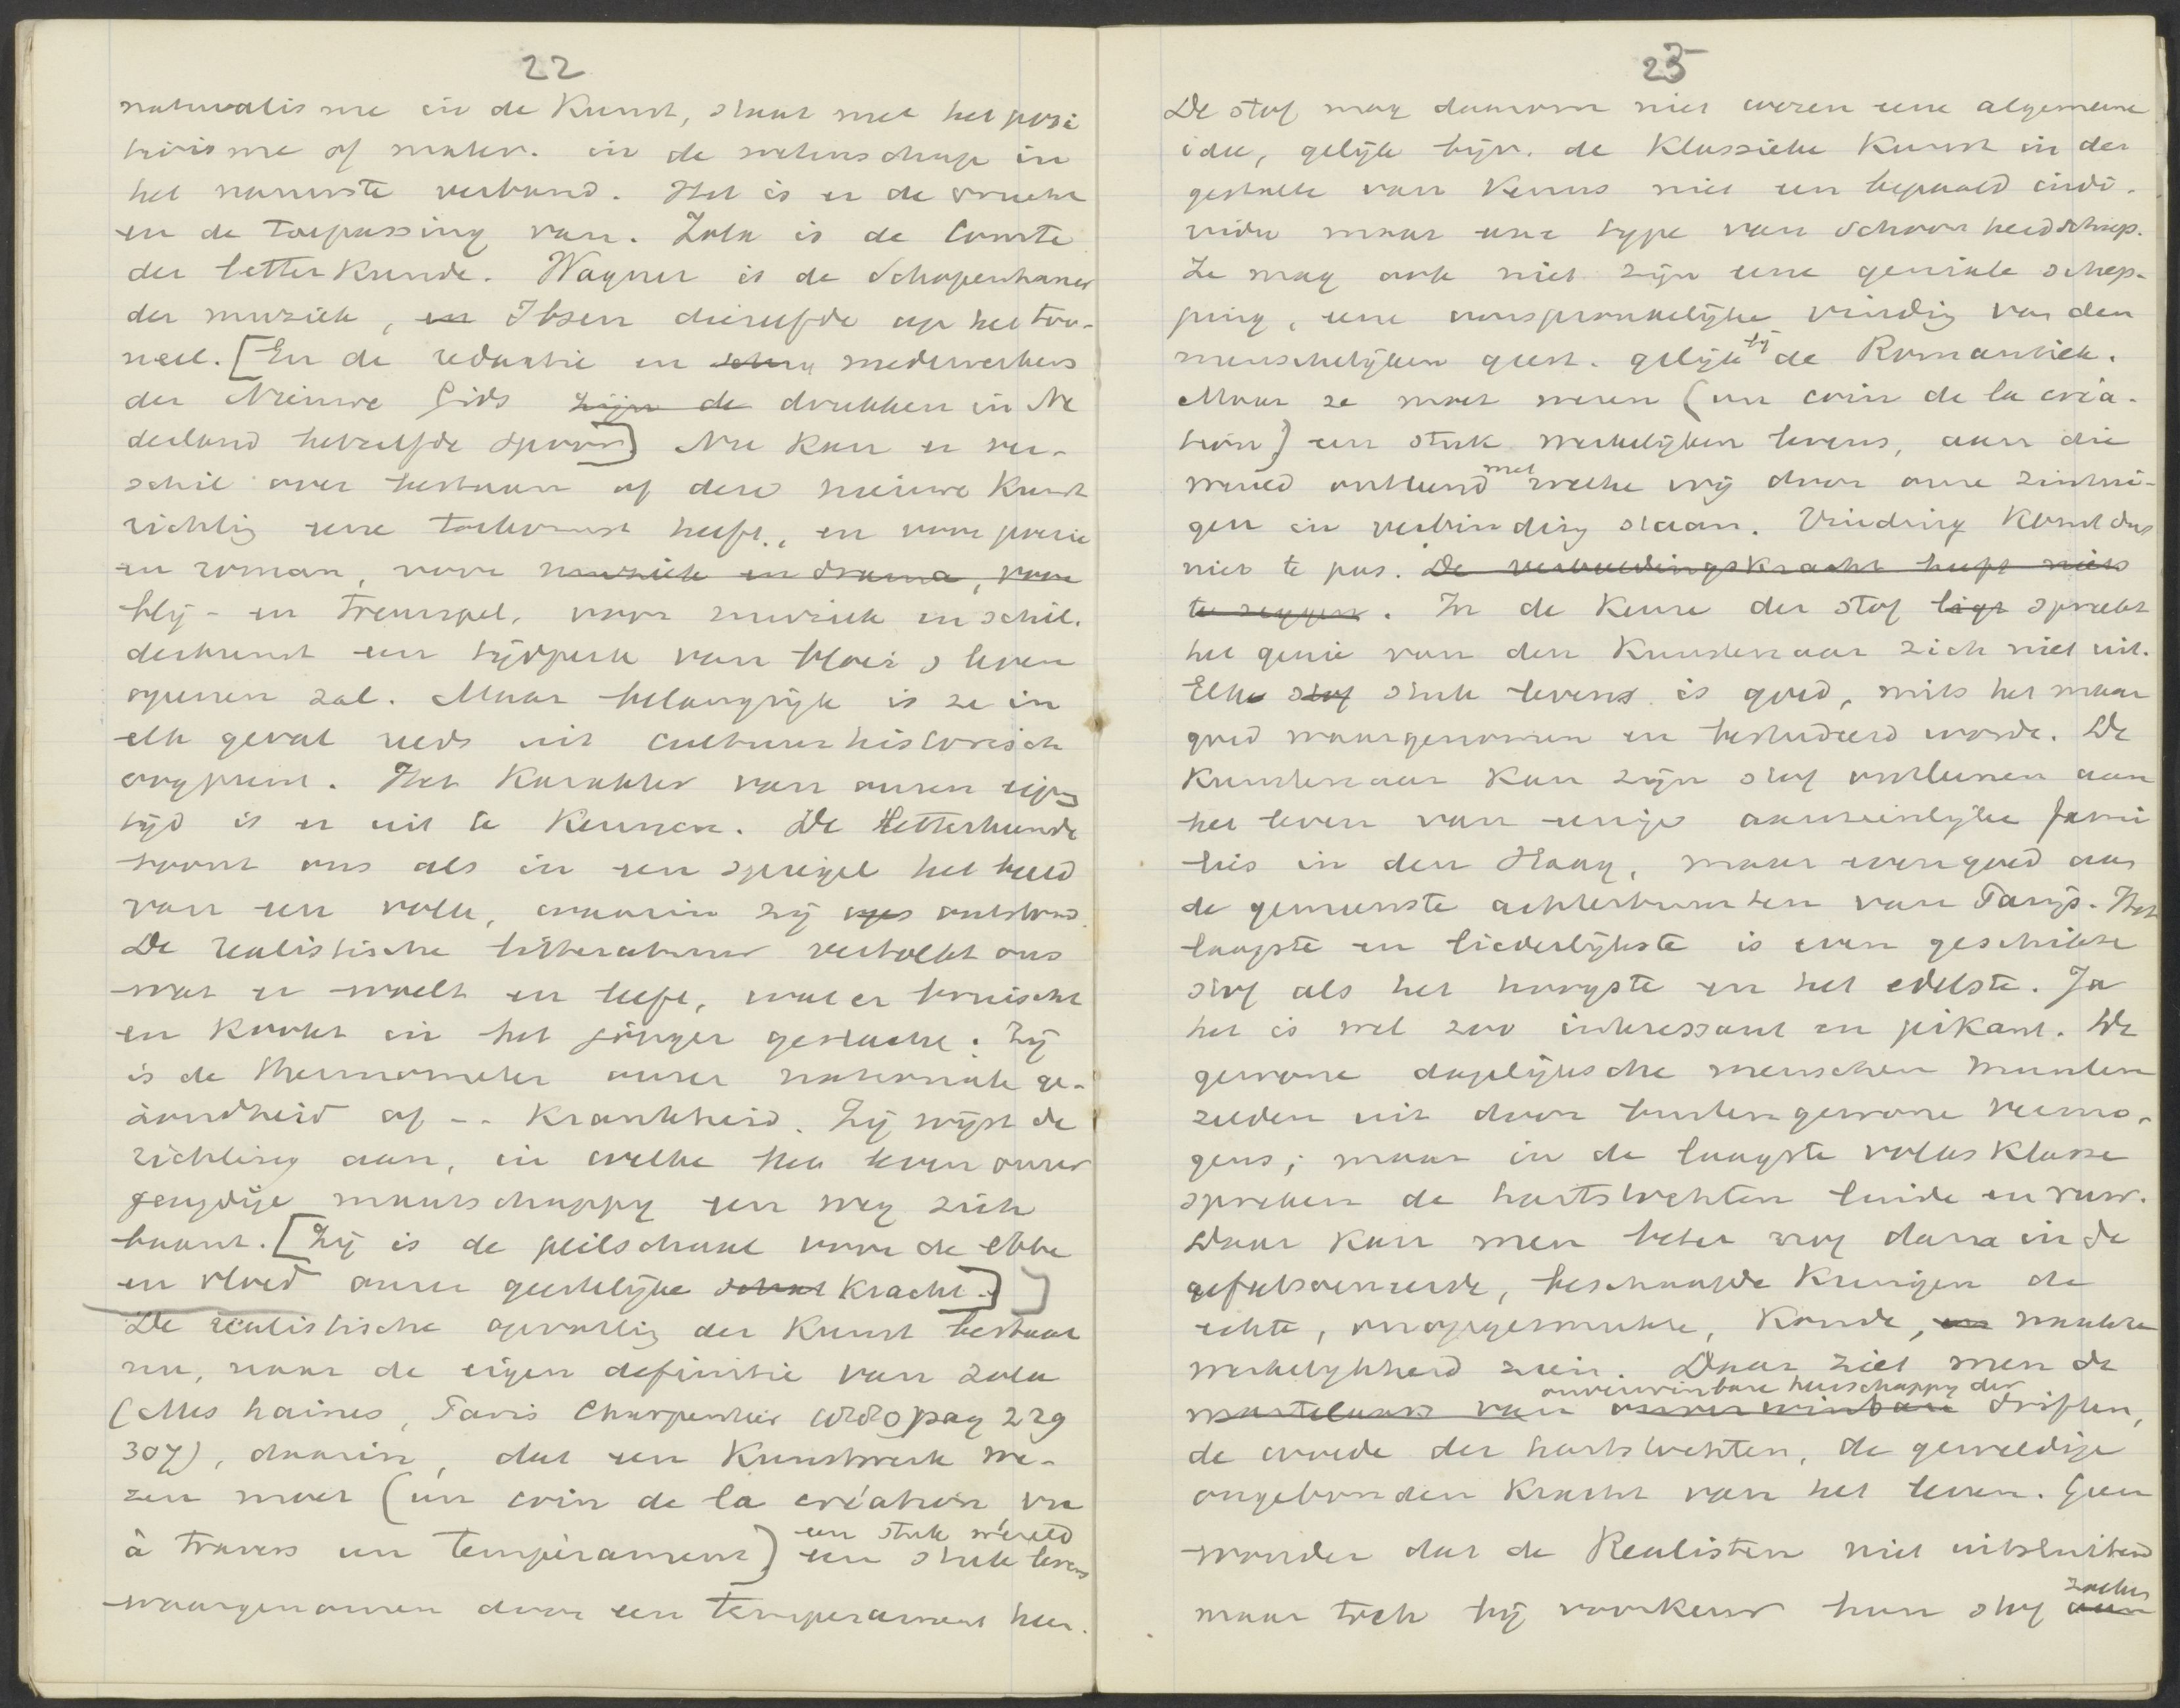 22
naturalisme in de Kunst, staat met het posi
tivisme of mater. in de wetenschap in
het nauwste verband. Het is er de vrucht
en de toepassing van. Zola is de Comte
der letterkunde. Wagner is de Schopenhauer
der muziek, en Ibsen dierzelfde op het too-
neel. [En de redactie en medewerkers
der Nieuwe Gids zijn de drukken in Ne
derland hetzelfde spoor] Nu kan er ver-
schil over bestaan of deze nieuwe Kunst
richtig eene toekomst heeft, en voor poezie
en roman, voor muziek en drama, voor
blij- en treurspel, voor muziek en schil.
derkunst een tijdperk van bloei & leven
openen zal. Maar belangrijk is ze in
elk geval reeds uit cultuurhistorisch
oogpunt. Het Karakter van onzen eigen
tijd is er uit te Kennen. De letterkunde
toont ons als in een spiegel het beeld
van een volk, waarin zij ontstond.
De realistische litteratuur vertolkt ons
wat er woelt en leeft, wat er bruischt
en Kookt in het jonger geslacht. Zij
is de thermometer onzer nationale ge-
zondheid of -- Krankheid. Zij wijst de
richting aan, in welke het leven onzer
jeugdige maatschappy een weg zich
baant. [Zij is de peilschaal voor de ebbe
en vloed onzer geestelijke Kracht.]]
De realistische opvattig der Kunst bestaat
nu, naar de eigen definitie van Zola
(Mes haines, Paris Charpentier 1880 pag 229
307), daarin, dat een Kunstwerk we-
zen moet (un coin de la création, vu
een stuk wereld
à travers un tempérament) een stuk leven
waargenomen door een temperament heen.
23
De stof mag daarom niet wezen eene algemeene
idee, gelijk bijv. de Klassieke Kunst in der
gestalte van Venus niet een bepaald indi-
vidu maar een type van schoonheid schiep.
Ze mag ook niet zijn eene geniale schep-
ping, eene oorspronkelijke vinding van den
bij
menschelijken geest. gelijk de Romantiek.
Maar ze moet wezen (un coin de la créa-
tion) een stuk werkelijken levens, aan die
met
wereld ontleend welke wij door onze zintui-
gen in verbinding staan. Vinding Komt dus
niet te pas. De verbeeldingskracht heeft niets
te zeggen. In de Keuze der stof ligt spreekt
het genie van den Kunstenaar zich niet uit.
Elk stof stuk levens is goed, mits het maar
goed waargenomen en bestudeerd worde. De
Kunstenaar Kan zijn stof ontleenen aan
het leven van eenige aanzienlijke fami
lies in den Haag, maar evengoed aan
de gemeenste achterbuurten van Parijs. Het
laagste en liederlijkste is even geschikte
stof als het hoogste en het edelste. Ja
het is wel zoo interessant en pikant. De
gewone dagelijksche menschen munten
zelden uit door buitengewone vermo-
gens; maar in de laagste volksklasse
spreken de hartstochten luide en ruw.
Daar Kan men beter nog dan in de
gefatsoeneerde, beschaafde Kringen de
echte, onopgesmukte, Ronde, en naakte
werkelijkheid zien. Daar ziet men de
onverwinbare heerschappy der
martelaars van onverwinbare driften,
de woede der hartstochten, de geweldige
ongebonden Kracht van het leven. Geen
wonder dat de Realisten niet uitsluitend
zoeken
maar toch bij voorkeur hun stof aan